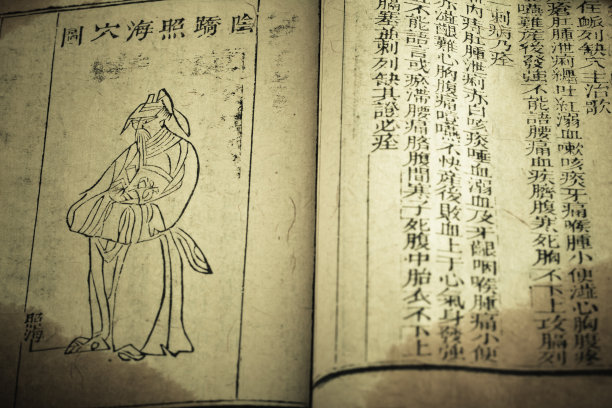 任脈列缺穴主治歌
瘡肛腫泄痢纏吐紅溺血嗽咳痰牙痛喉腫小便澀心胸腹疼
噎嚥難產後發強不能語腰痛血疾臍腹寒死胎不下上攻膈列
刺病乃痊
內痔肛腫泄痢赤白咳痰唾血溺血及牙齦咽喉腫痛小便
赤澀艱難心胸腹痛噎嚥不快產後敗血上于心氣身發強
不能語言或瘀滯腰痛臍腹間寒子死腹中胎衣不下上
膈塞並刺列缺其證必痊
陰蹻照海穴圖
照海